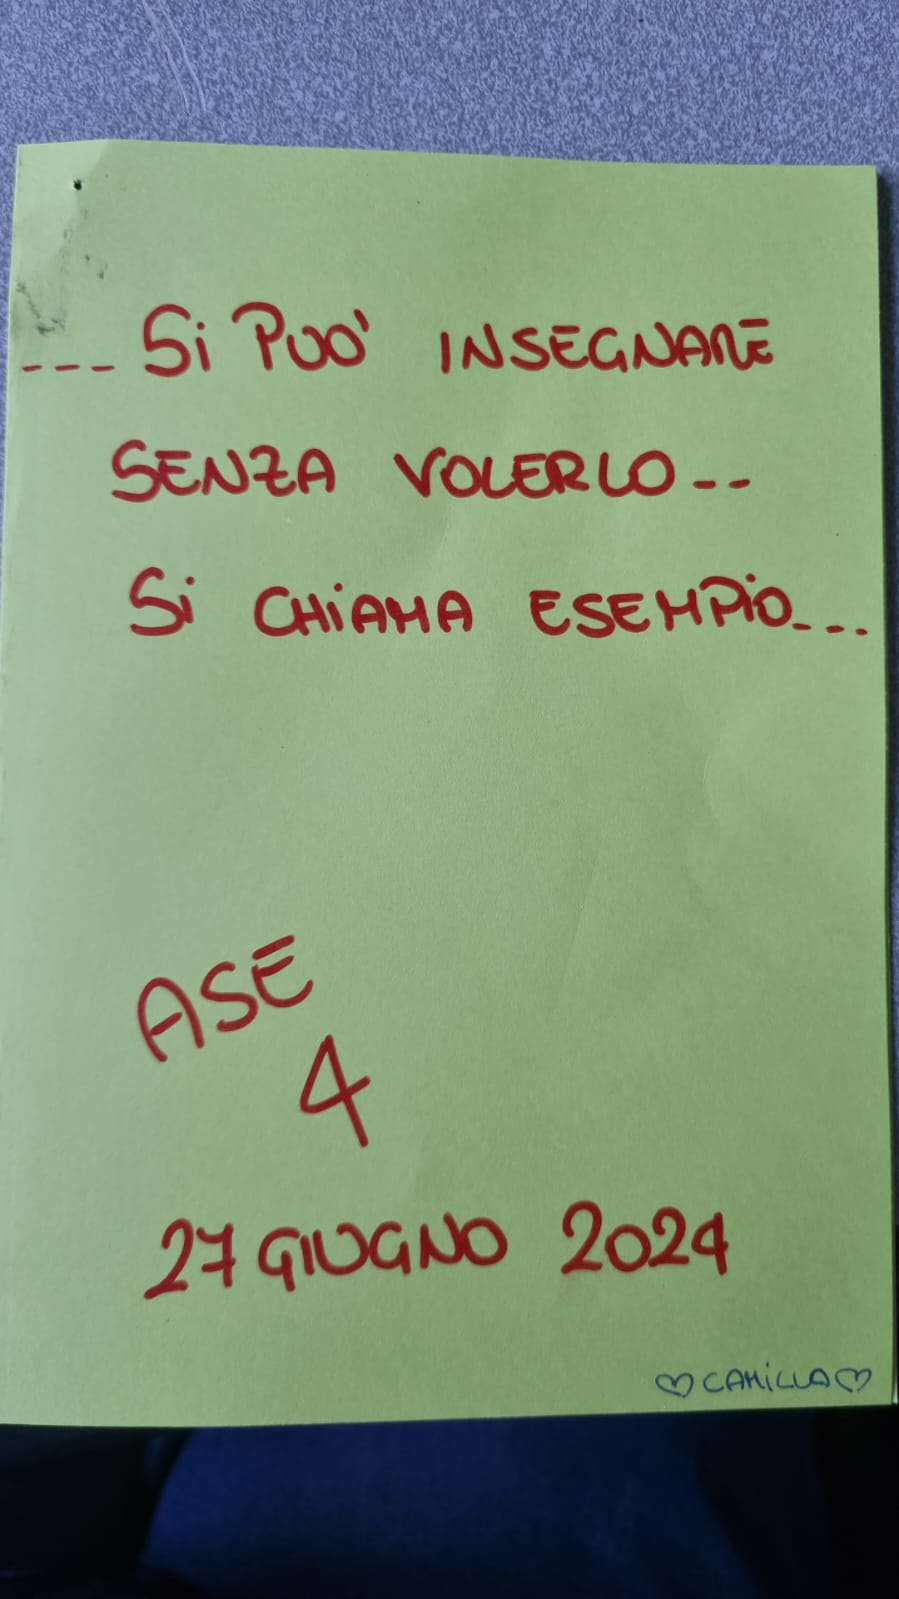 --- Si PUO' INSEGNARE
SENZA VOLERLO--
Si CHiAMA ESEMPiO---
ASE
4
27 GIUGNO 2024
♡CAMiLLA♡